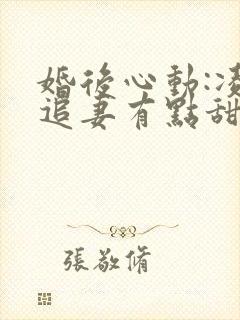 婚後心動:凌
追妻有點甜
張敬脩